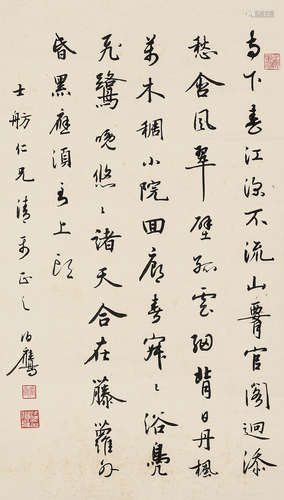 寺下春江深不流山腰官閣迥添
愁含風翠壁孤雲細背日丹楓
萬木稠小院回廊春寂〻浴鳧
飛鷺晚悠〻諸天合在藤蘿外
昏黑應須到上頭
士舫仁兄清 正之 伯鷹